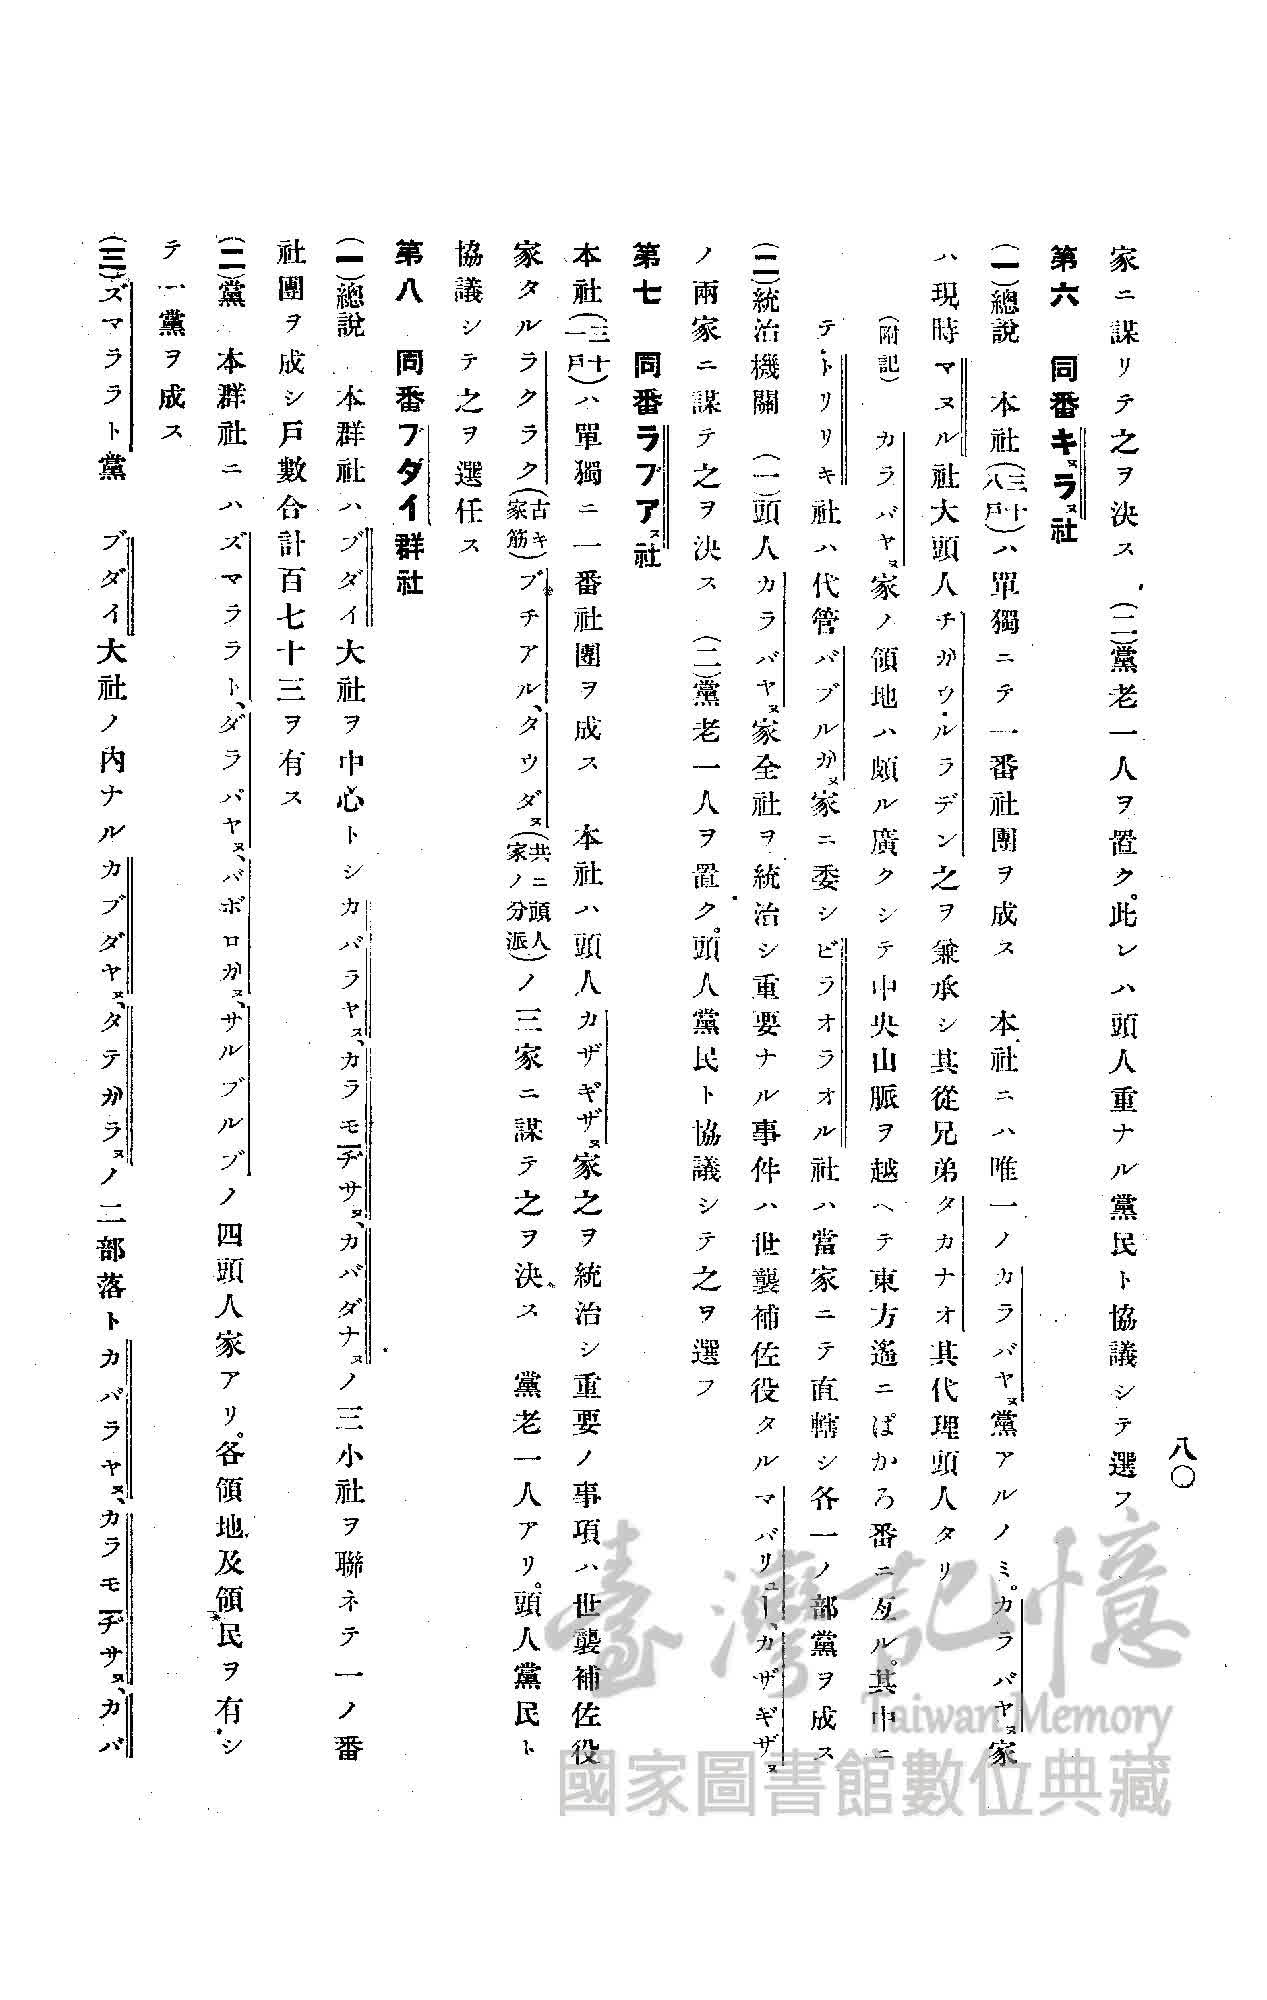 八〇
家ニ謀リテ之ヲ決ス (二)黨老一人ヲ置ク。此レハ頭人重ナル黨民ト協議シテ選フ
第六 同番キヌラヌ社
(一)總說 本社(三十八戶)ハ單獨ニテ一番社團ヲ成ス 本社ニハ唯一ノカラバヤヌ黨アルノミ。カラバヤヌ家
ハ現時マヌル社大頭人チガウルラデン之ヲ兼承シ其從兄弟タカナオ其代理頭人タリ
(附記) カラバヤヌ家ノ領地ハ頗ル廣クシテ中央山脈ヲ越ヘテ東方遙ニぱかろ番ニ亙ル。其中ニ
テトリリキ社ハ代管バブルガヌ家ニ委シビラオラオル社ハ當家ニテ直轄シ各一ノ部黨ヲ成ス
(二)統治機關 (一)頭人カラバヤヌ家全社ヲ統治シ重要ナル事件ハ世襲補佐役タルマバリュー、カザギザヌ
ノ兩家ニ謀テ之ヲ決ス (二)黨老一人ヲ置ク。頭人黨民ト協議シテ之ヲ選フ
第七 同番ラブアヌ社
本社(三十一戶)ハ單獨ニ一番社團ヲ成ス 本社ハ頭人カザギザヌ家之ヲ統治シ重要ノ事項ハ世襲補佐役
家タルラクラク(古キ家筋)ブチアル、タウダヌ(共ニ頭人家ノ分派)ノ三家ニ謀テ之ヲ決ス 黨老一人アリ。頭人黨民ト
協議シテ之ヲ選任ス
第八 同番ブダイ群社
(一)總說 本群社ハブダイ大社ヲ中心トシカバラヤヌ、カラモヂサヌ、カバダナヌノ三小社ヲ聯ネテ一ノ番
社團ヲ成シ戶數合計百七十三ヲ有ス
(二)黨 本群社ニハズマララト、ダラバヤヌ、バボロガヌ、サルブルブノ四頭人家アリ。各領地及領民ヲ有シ
テ一黨ヲ成ス
(三)ズマララト黨 ブダイ大社ノ內ナルカブダヤヌ、タテガラヌノ二部落トカバラヤヌ、カラモヂサヌ、カバ
臺灣記憶
Taiwan Memory
國家圖書館數位典藏